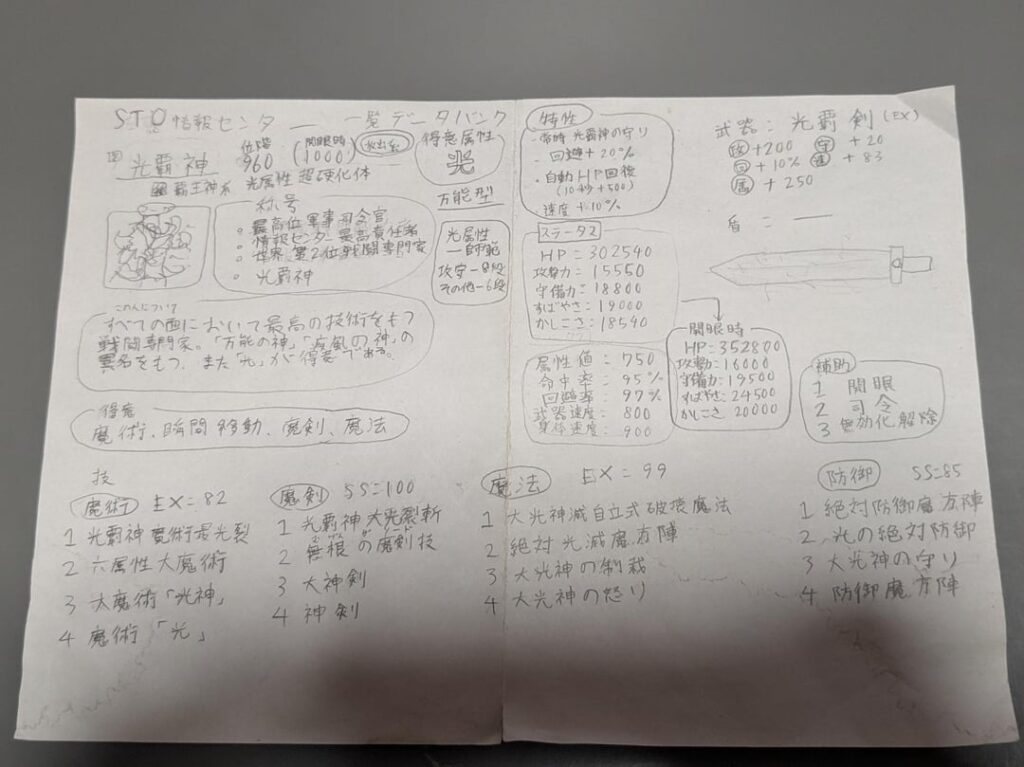 S.T.O 情報センター 一覧データバンク
光覇神
位階 960
(開眼時 1000)
放出系
覇王神系 光属性 超硬化体
得意属性
光
万能型
称号
・最高位軍事司令官
・情報センター最高責任者
・世界第2位戦闘専門家
・光覇神
光属性
ー師範
攻守ー8段
その他ー6段
すべての面において最高の技術をもつ
戦闘専門家。「万能の神」「疾風の神」の
異名をもつ。また「光」が得意である。
得意
魔術、瞬間移動、魔剣、魔法
特性
・常時 光覇神の守り
・回避+20%
・自動HP回復
(10秒+500)
・速度+10%
ステータス
HP=302540
攻撃力=15550
守備力=18800
すばやさ=19000
かしこさ=18540
属性値:750
命中率:95%
回避率:97%
武器速度:800
身体速度:900
開眼時
HP=352800
攻撃力=16000
守備力=19500
すばやさ=24500
かしこさ=20000
武器:光覇剣(EX)
攻+200 守+20
回+10% 速+83
属+250
盾:ー
補助
1 開眼
2 司令
3 無効化解除
技
魔術 EX=82
1 光覇神魔術最光裂
2 六属性大魔術
3 大魔術「光神」
4 魔術「光」
魔剣 SS=100
1 光覇神大光裂斬
2 無限の魔剣技
3 大神剣
4 神剣
魔法 EX=99
1 大光神滅自立式破壊魔法
2 絶対光滅魔方陣
3 大光神の制裁
4 大光神の怒り
防御 SS=85
1 絶対防御魔方陣
2 光の絶対防御
3 大光神の守り
4 防御魔方陣